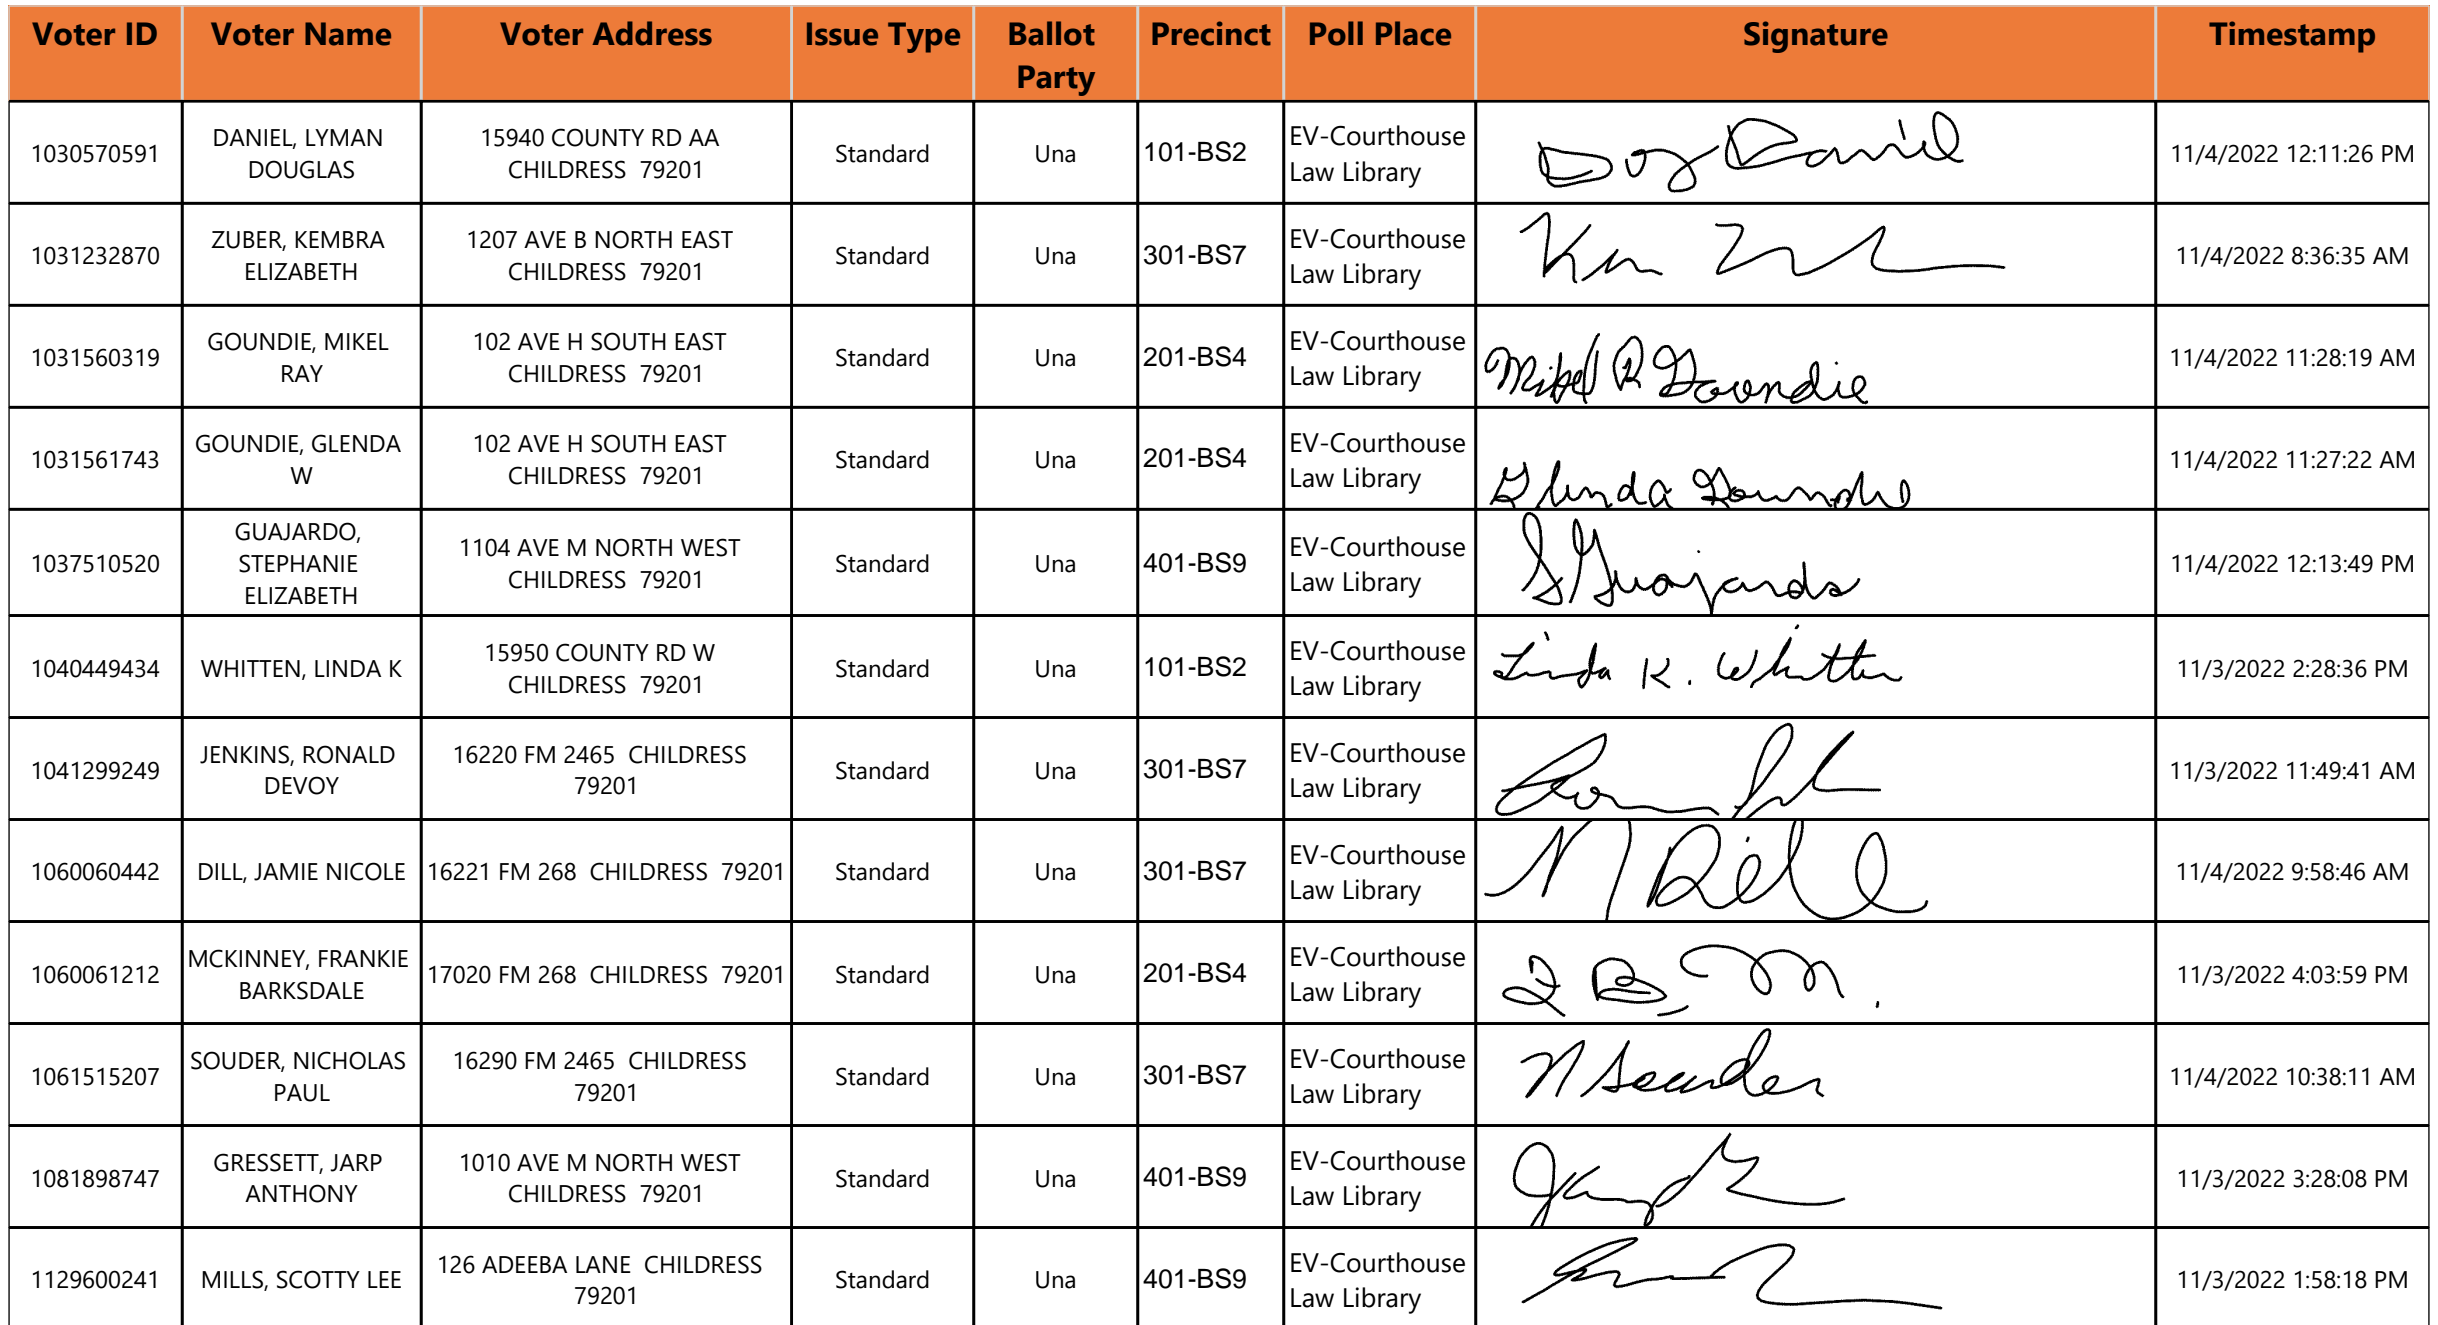 Voter ID Voter Name Voter Address Issue Type Ballot Party Precinct Poll Place Signature Timestamp
1030570591 DANIEL, LYMAN DOUGLAS 15940 COUNTY RD AA CHILDRESS 79201 Standard Una 101-BS2 EV-Courthouse Law Library Doug Daniel 11/4/2022 12:11:26 PM
1031232870 ZUBER, KEMBRA ELIZABETH 1207 AVE B NORTH EAST CHILDRESS 79201 Standard Una 301-BS7 EV-Courthouse Law Library 11/4/2022 8:36:35 AM
1031560319 GOUNDIE, MIKEL RAY 102 AVE H SOUTH EAST CHILDRESS 79201 Standard Una 201-BS4 EV-Courthouse Law Library Mikel R Goundie 11/4/2022 11:28:19 AM
1031561743 GOUNDIE, GLENDA W 102 AVE H SOUTH EAST CHILDRESS 79201 Standard Una 201-BS4 EV-Courthouse Law Library Glenda Goundie 11/4/2022 11:27:22 AM
1037510520 GUAJARDO, STEPHANIE ELIZABETH 1104 AVE M NORTH WEST CHILDRESS 79201 Standard Una 401-BS9 EV-Courthouse Law Library S Guajardo 11/4/2022 12:13:49 PM
1040449434 WHITTEN, LINDA K 15950 COUNTY RD W CHILDRESS 79201 Standard Una 101-BS2 EV-Courthouse Law Library Linda K. Whitten 11/3/2022 2:28:36 PM
1041299249 JENKINS, RONALD DEVOY 16220 FM 2465 CHILDRESS 79201 Standard Una 301-BS7 EV-Courthouse Law Library 11/3/2022 11:49:41 AM
1060060442 DILL, JAMIE NICOLE 16221 FM 268 CHILDRESS 79201 Standard Una 301-BS7 EV-Courthouse Law Library N Dill 11/4/2022 9:58:46 AM
1060061212 MCKINNEY, FRANKIE BARKSDALE 17020 FM 268 CHILDRESS 79201 Standard Una 201-BS4 EV-Courthouse Law Library F B. M. 11/3/2022 4:03:59 PM
1061515207 SOUDER, NICHOLAS PAUL 16290 FM 2465 CHILDRESS 79201 Standard Una 301-BS7 EV-Courthouse Law Library N Souder 11/4/2022 10:38:11 AM
1081898747 GRESSETT, JARP ANTHONY 1010 AVE M NORTH WEST CHILDRESS 79201 Standard Una 401-BS9 EV-Courthouse Law Library 11/3/2022 3:28:08 PM
1129600241 MILLS, SCOTTY LEE 126 ADEEBA LANE CHILDRESS 79201 Standard Una 401-BS9 EV-Courthouse Law Library 11/3/2022 1:58:18 PM